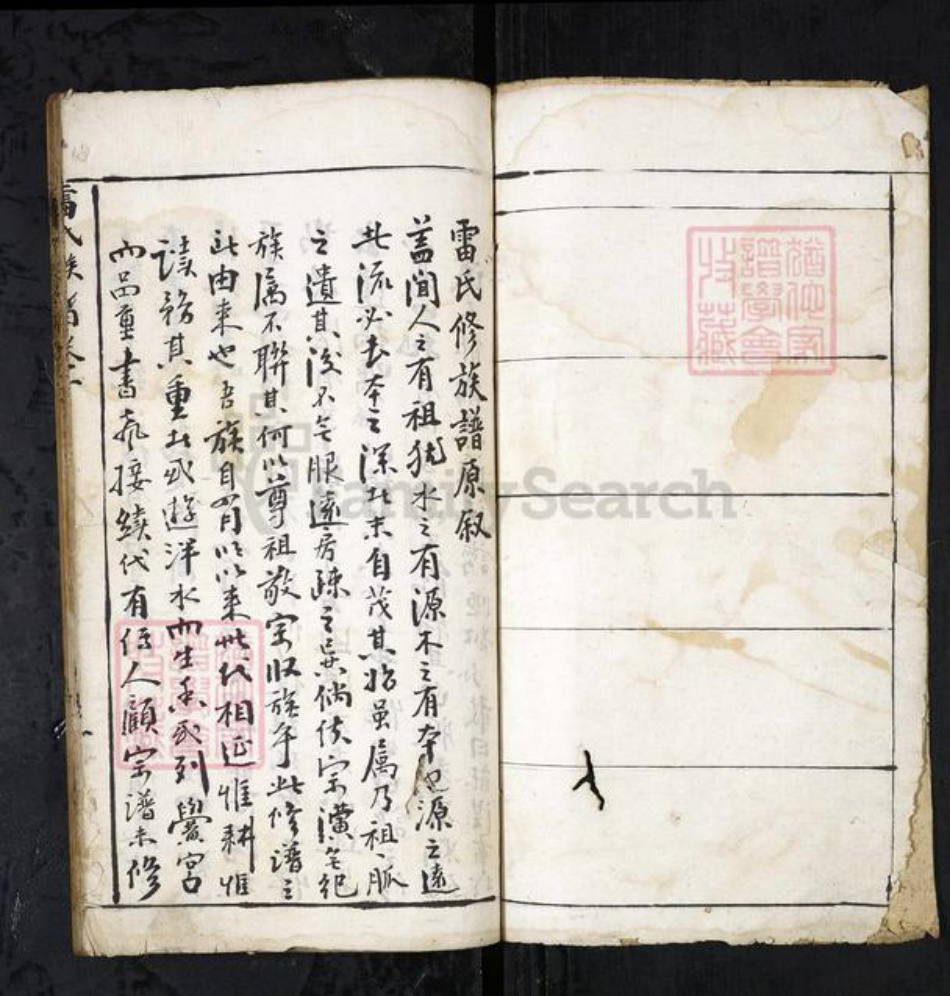 雷氏修族譜原叙
盖闻人之有祖犹水之有源木之有本也源之遠
者流必長本之深者末自茂其始虽属乃祖乃脈
之遺其後不無服遠房疎之异倘使宗潢無紀
族属不聯其何以尊祖敬宗收族乎此修譜之
所由来也吾族自以来世代相延惟耕惟
讀務其重者或遊泮水而生香或列黌宮
而品重書香接續代有伟人顧宗譜未修
雷氏族譜卷一
猶他家譜學會收藏
FamilySearch